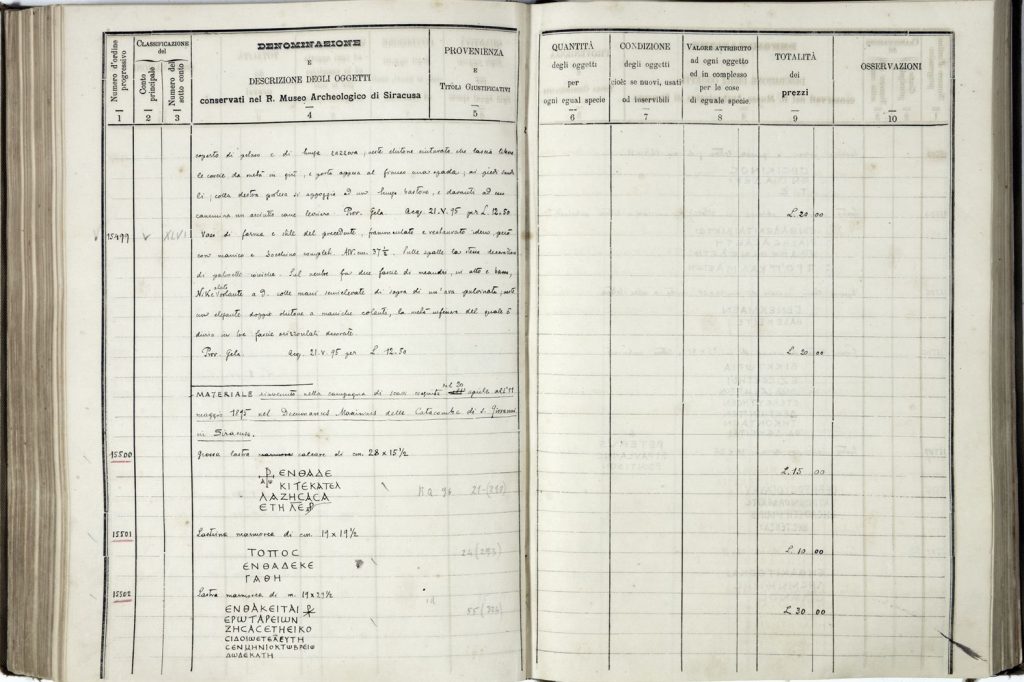 Numero d'ordine progressivo
CLASSIFICAZIONE
del
Conto principale
Numero del sotto conto
DENOMINAZIONE
E
DESCRIZIONE DEGLI OGGETTI
conservati nel R. Museo Archeologico di Siracusa
PROVENIENZA
E
TITOLI GIUSTIFICATIVI
1
2
3
4
5
QUANTITÀ
degli oggetti
per
ogni egual specie
CONDIZIONE
degli oggetti
cioè: se nuovi, usati
od inservibili
VALORE ATTRIBUITO
ad ogni oggetto
ed in complesso
per le cose
di eguale specie
TOTALITÀ
dei
prezzi
OSSERVAZIONI
6
7
8
9
10
coperto di petaso e di lunga zazzera, veste chitone cinturato che lascia libere
le coscie da metà in giù, e porta appesa al fianco una spada; ai piedi
colla destra si appoggia ad un lungo bastone, e davanti ad esso
cammina un cane levriero. Prov. Gela. Acq. 21.V.95 per L. 12.50
L. 20 00
15499
V
XLVI
Vaso di forma e stile del precedente, frammentato e restaurato idem, però
con manico e completi. Alt. cm. 37½. Sulle spalle la stessa decorazione
di palmette. Sul ventre fra due fascie di meandro, in alto e basso,
Nike volante a D. colle mani semielevate di sopra di un'ara pulvinata; veste
un elegante doppio chitone a maniche, la metà inferiore del quale è
in tre fascie orizzontali decorate.
Prov. Gela. Acq. 21.V.95 per L. 12.50
L. 20 00
MATERIALE rinvenuto nella campagna di scavi eseguita dal 20 aprile all'11
maggio 1895 nel Decumanus Maximus delle Catacombe di S. Giovanni
in Siracusa.
15500
Grossa lastra calcare di cm. 28 x 15½
L. 15 00
ΕΝΘΑΔΕ
ΚΙΤΕΚΑΤΕΛ
ΛΑΖΗϹΑϹΑ
ΕΤΗΛΕ
15501
Lastrina marmorea di cm. 19 x 19½
ΤΟΠΟϹ
ΕΝΘΑΔΕΚΕ
ΓΑΘΗ
24 (253)
L. 10 00
15502
Lastra marmorea di m. 19 x 29½
ΕΝΘΑΚΕΙΤΑΙ ☧
ΕΡΩΤΑΡΕΙΩΝ
ΖΗϹΑϹΕΤΗΕΙΚΟ
ϹΙΔΟΙΩΕΤΕΛΕΥΤΗ
ϹΕΝΜΗΝΙΟΚΤΩΒΡΕΙΩ
ΔΩΔΕΚΑΤΗ
L. 30 00